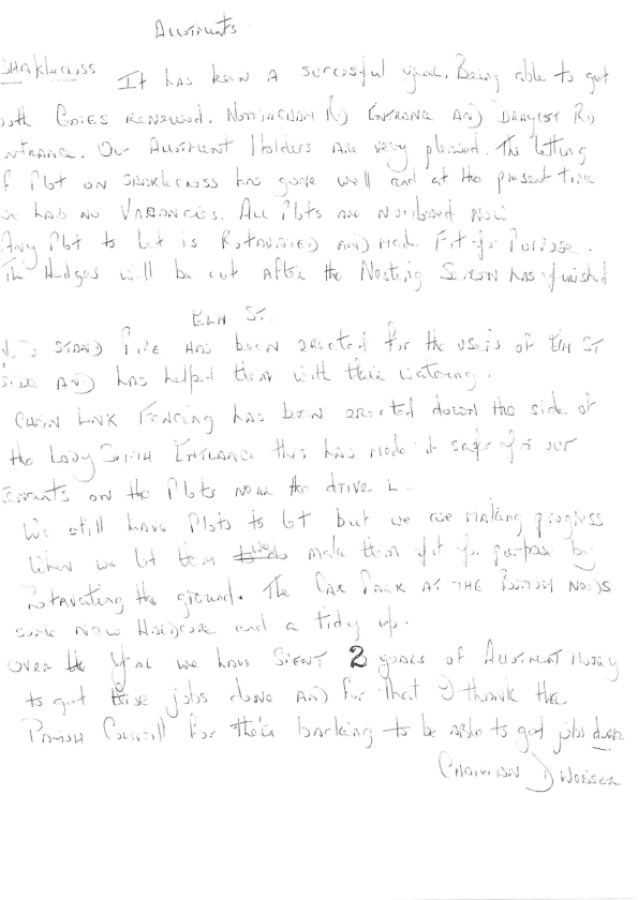 Allotments
Shaklecross It has been a successful year. Being able to get
both Gates renewed. Nottingham Rd Entrance and Draycott Rd
entrance. Our Allotment Holders are very pleased. The letting
of Plot on Shaklecross has gone well and at the present time
we has no Vacancies. All Plots are numbered now
Any Plot to let is Rotavated and made Fit for Purpose.
The Hedges will be cut after the Nesting Season has finished
Elm St.
Stand Pipe has been erected for the users of Elm St
side and has helped them with their watering.
Chain Link Fencing has been erected down the side of
the Lady Smith Entrance this has made it safe for our
Tenants on the Plots near the drive in
We still have Plots to let but we are making progress
When we let them we do make them fit for purpose by
Rotavating the ground. The Car Park at the Bottom needs
some new Hardcore and a tidy up.
Over the Year we have spent 2 years of Allotment Money
to get these jobs done and for that I thank the
Parish Council for their backing to be able to get jobs done
Chairman D